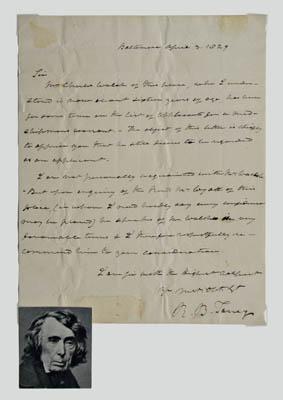 Baltimore April 3. 1829
Sir
Mr Charles Walsh of this place, who I under-
stand is now about sixteen years of age has been
for some time on the list of applicants for a mid-
shipmans warrant - The object of this letter is chiefly
to apprise you that he still desires to be regarded
as an applicant.
I am not personally acquainted with Mr Walsh
But upon enquiry of the Revd Mr Wyatt of this
place, (in whom I need hardly say every confidence
may be placed) he speaks of Mr Walsh in very
favourable terms & I therefore respectfully re-
commend him to your consideration
I am Sir with the highest respect
Yr Most Obt St
R. B. Taney